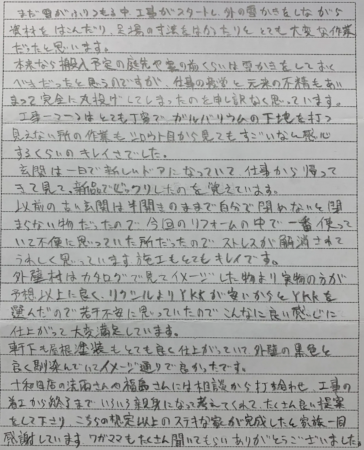 まだ雪がふりつもる中、工事がスタートし、外の雪かきをしながら
資材をはこんだり、足場の寸法をはかったりととても大変な作業
だったと思います。
本来なら搬入予定の庭先や家の前くらいは雪かきをしておく
べきだったと思うのですが、仕事の多忙と元来の不精もあい
まって完全に丸投げしてしまったのを申し訳なく思っています。
工事一つ一つはとても丁寧で ガルバリウムの下地を打つ
見えない所の作業もシロウト目から見てもすごいなぁ感心
するくらいのキレイさでした。
玄関は一日で新しいドアになっていて 仕事から帰って
きて見て、新品でビックリしたのを覚えています。
以前の古い玄関は半開きのままで自分で閉めないと閉
まらない物だったので 今回のリフォームの中で一番使って
いて不便に思っていた所だったので ストレスが解消されて
うれしく思っています。施工もとてもキレイです。
外壁材はカタログで見てイメージした物より実物の方が
予想以上に良く、リクシルよりYKKが安いからとYKKを
選んだので 若干不安に思っていたので こんなに良い感じに
仕上がって大変満足しています。
軒下も屋根塗装もとても良く仕上がっていて 外壁の黒色と
良く馴染んでいてイメージ通りで良かったです。
十和田店の さんや福島さんには相談から打ち合わせ、工事の
着工から終るまでいろいろ親身になって考えてくれて、たくさん良い提案
をして下さり、こちらの想定以上のステキな家が完成したと家族一同
感謝しています。ワガママもたくさん聞いてもらい ありがとうございました。